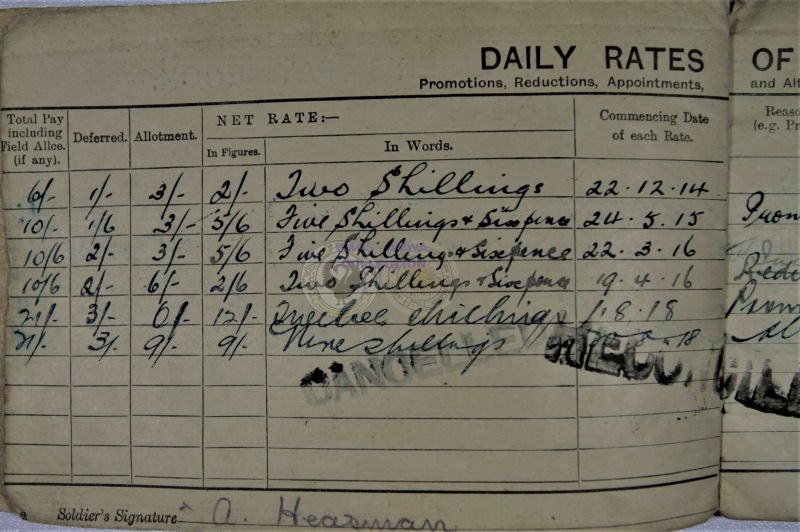 DAILY RATES OF
Promotions, Reductions, Appointments, and Alt
Total Pay including Field Allce. (if any). Deferred. Allotment. NET RATE:— In Figures. In Words. Commencing Date of each Rate. Reaso (e.g. Pr
6/- 1/- 3/- 2/- Two Shillings 22.12.14
10/- 1/6 3/- 5/6 Five Shillings & Sixpence 24.5.15 Prom
10/6 2/- 3/- 5/6 Five Shillings & Sixpence 22.3.16
10/6 2/- 6/- 2/6 Two Shillings & Sixpence 19.4.16 Redu
21/- 3/- 12/- Twelve shillings 1.8.18 Prom
21/- 3/- 9/- 9/- Nine shillings 18
CANCELLED
Soldier's Signature A. Hearman